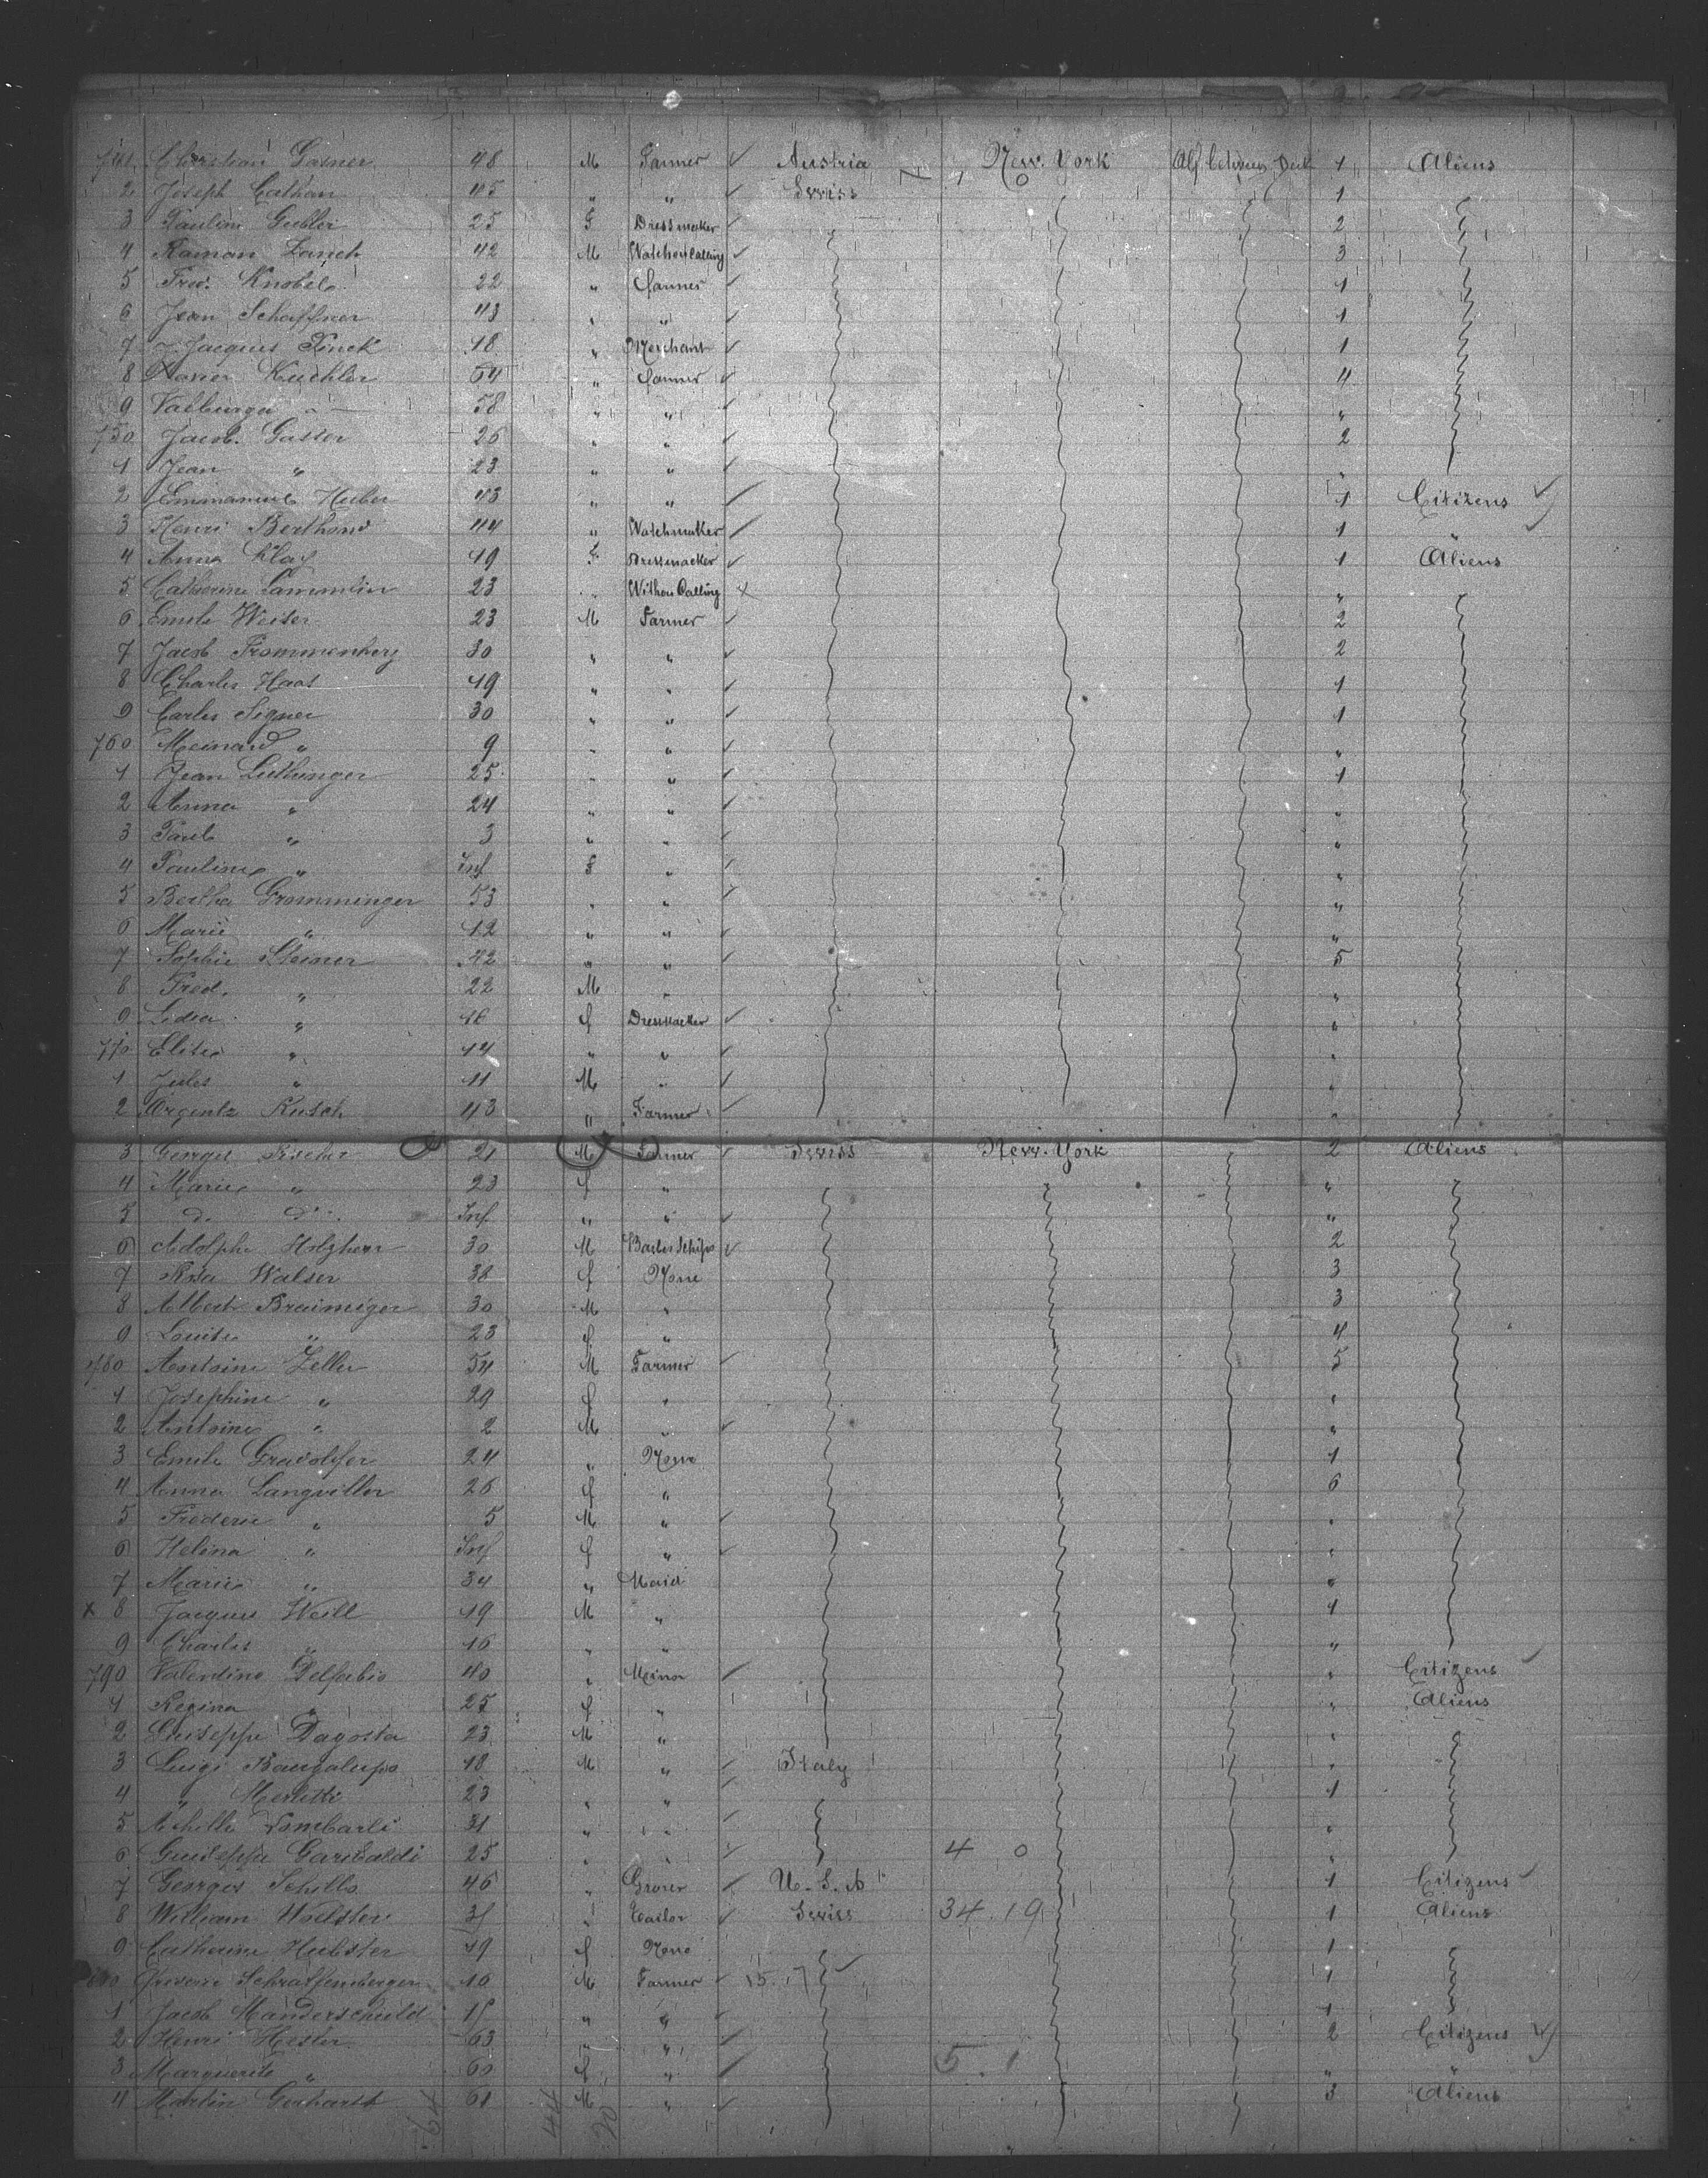 741 Christian Gasner 48 M Farmer ✓ Austria New. York Aft between Deck 1 Aliens
2 Joseph Cathan 45 " " ✓ Swiss 1
3 Pauline Gubler 25 F Dressmaker ✓ 2
4 Roman Zanch 42 M Wathout Calling ✓ 3
5 Fred. Knobel 22 " Farmer ✓ 1
6 Jean Schaffner 43 " " ✓ 1
7 J. Jacques Finck 18 " Merchant ✓ 1
8 Xavier Kuchler 54 " Farmer ✓ 4
9 Valburga " 58 " " ✓ "
750 Jacob. Gasser 26 " " ✓ 2
1 Jean " 23 " " ✓ "
2 Emmanuel Huber 43 " " ✓ 1 Citizens ✓
3 Henri Berthoud 44 " Watchmaker ✓ 1 " ✓
4 Anna Klay 19 F Dressmacker ✓ 1 Aliens
5 Catherine 23 " Withou Calling x "
6 Emile Weiser 23 M Farmer ✓ 2
7 Jacob Frommenherg 30 " " ✓ 2
8 Charles Haas 19 " " ✓ 1
9 Carles Signer 30 " " ✓ 1
760 Meinard " 9 " " ✓ "
1 Jean Luthinger 25 " " ✓ 1
2 Anna " 24 " " ✓ "
3 Paul " 3 " " ✓ "
4 Pauline " Inf F " ✓ "
5 Bertha Gromminger 53 " " ✓ "
6 Marie " 12 " " ✓ "
7 Sophie Steiner 42 " " ✓ 5
8 Fred. " 22 M " "
9 Lidia " 16 f Dressmacker ✓ "
770 Elise " 14 " " ✓ "
1 Jules " 11 M " ✓ "
2 Kusch 43 " Farmer ✓ "
3 Georges Fischer 21 M Farmer ✓ Swiss New. York 2 Aliens
4 Marie " 23 f " "
5 d. d. Inf " " ✓ "
6 Adolphe Holzherr 30 M ✓ 2
7 Rosa Walser 38 f None 3
8 Albert Braimiger 30 M " 3
9 Louise " 23 f " 4
780 Antoine Zeller 54 M Farmer ✓ 5
1 Josephine " 29 f " "
2 Antoine " 2 M " ✓ "
3 Emile Gradolfer 24 " None 1
4 Anna Langviller 26 f " 6
5 Frederic " 5 M " ✓ "
6 Helina " Inf f " ✓ "
7 Marie " 34 " Maid "
x 8 Jacques Weill 19 M " 1
9 Charles " 16 " " "
790 Valentino Delfabio 40 " Minor ✓ " Citizens ✓
1 Regina " 25 f " " Aliens
2 Guiseppe Dagosta 23 M " "
3 Luigi 18 M " ✓ Italy "
4 " Merletti 23 " " ✓ 1
5 Achille Lombardi 31 " " ✓ "
6 Guiseppe Garibaldi 25 " " ✓ 4 0 "
7 Georges Schills 46 " Grover ✓ U. S. A 1 Citizens ✓
8 William 31 " Tailor ✓ Swiss 34.19 1 Aliens
9 Catherine Hubster 19 f None 1
800 Schraffenberger 16 M Farmer ✓ 15.17 ✓ 1
1 Jacob Manderscheild 18 " " ✓ 1
2 Henri Hester 63 " " ✓ 2 Citizens ✓
3 Marguerite " 60 f " ✓ 5.1 " "
4 Martin Gerhardt 61 M " ✓ 3 Aliens
44 20